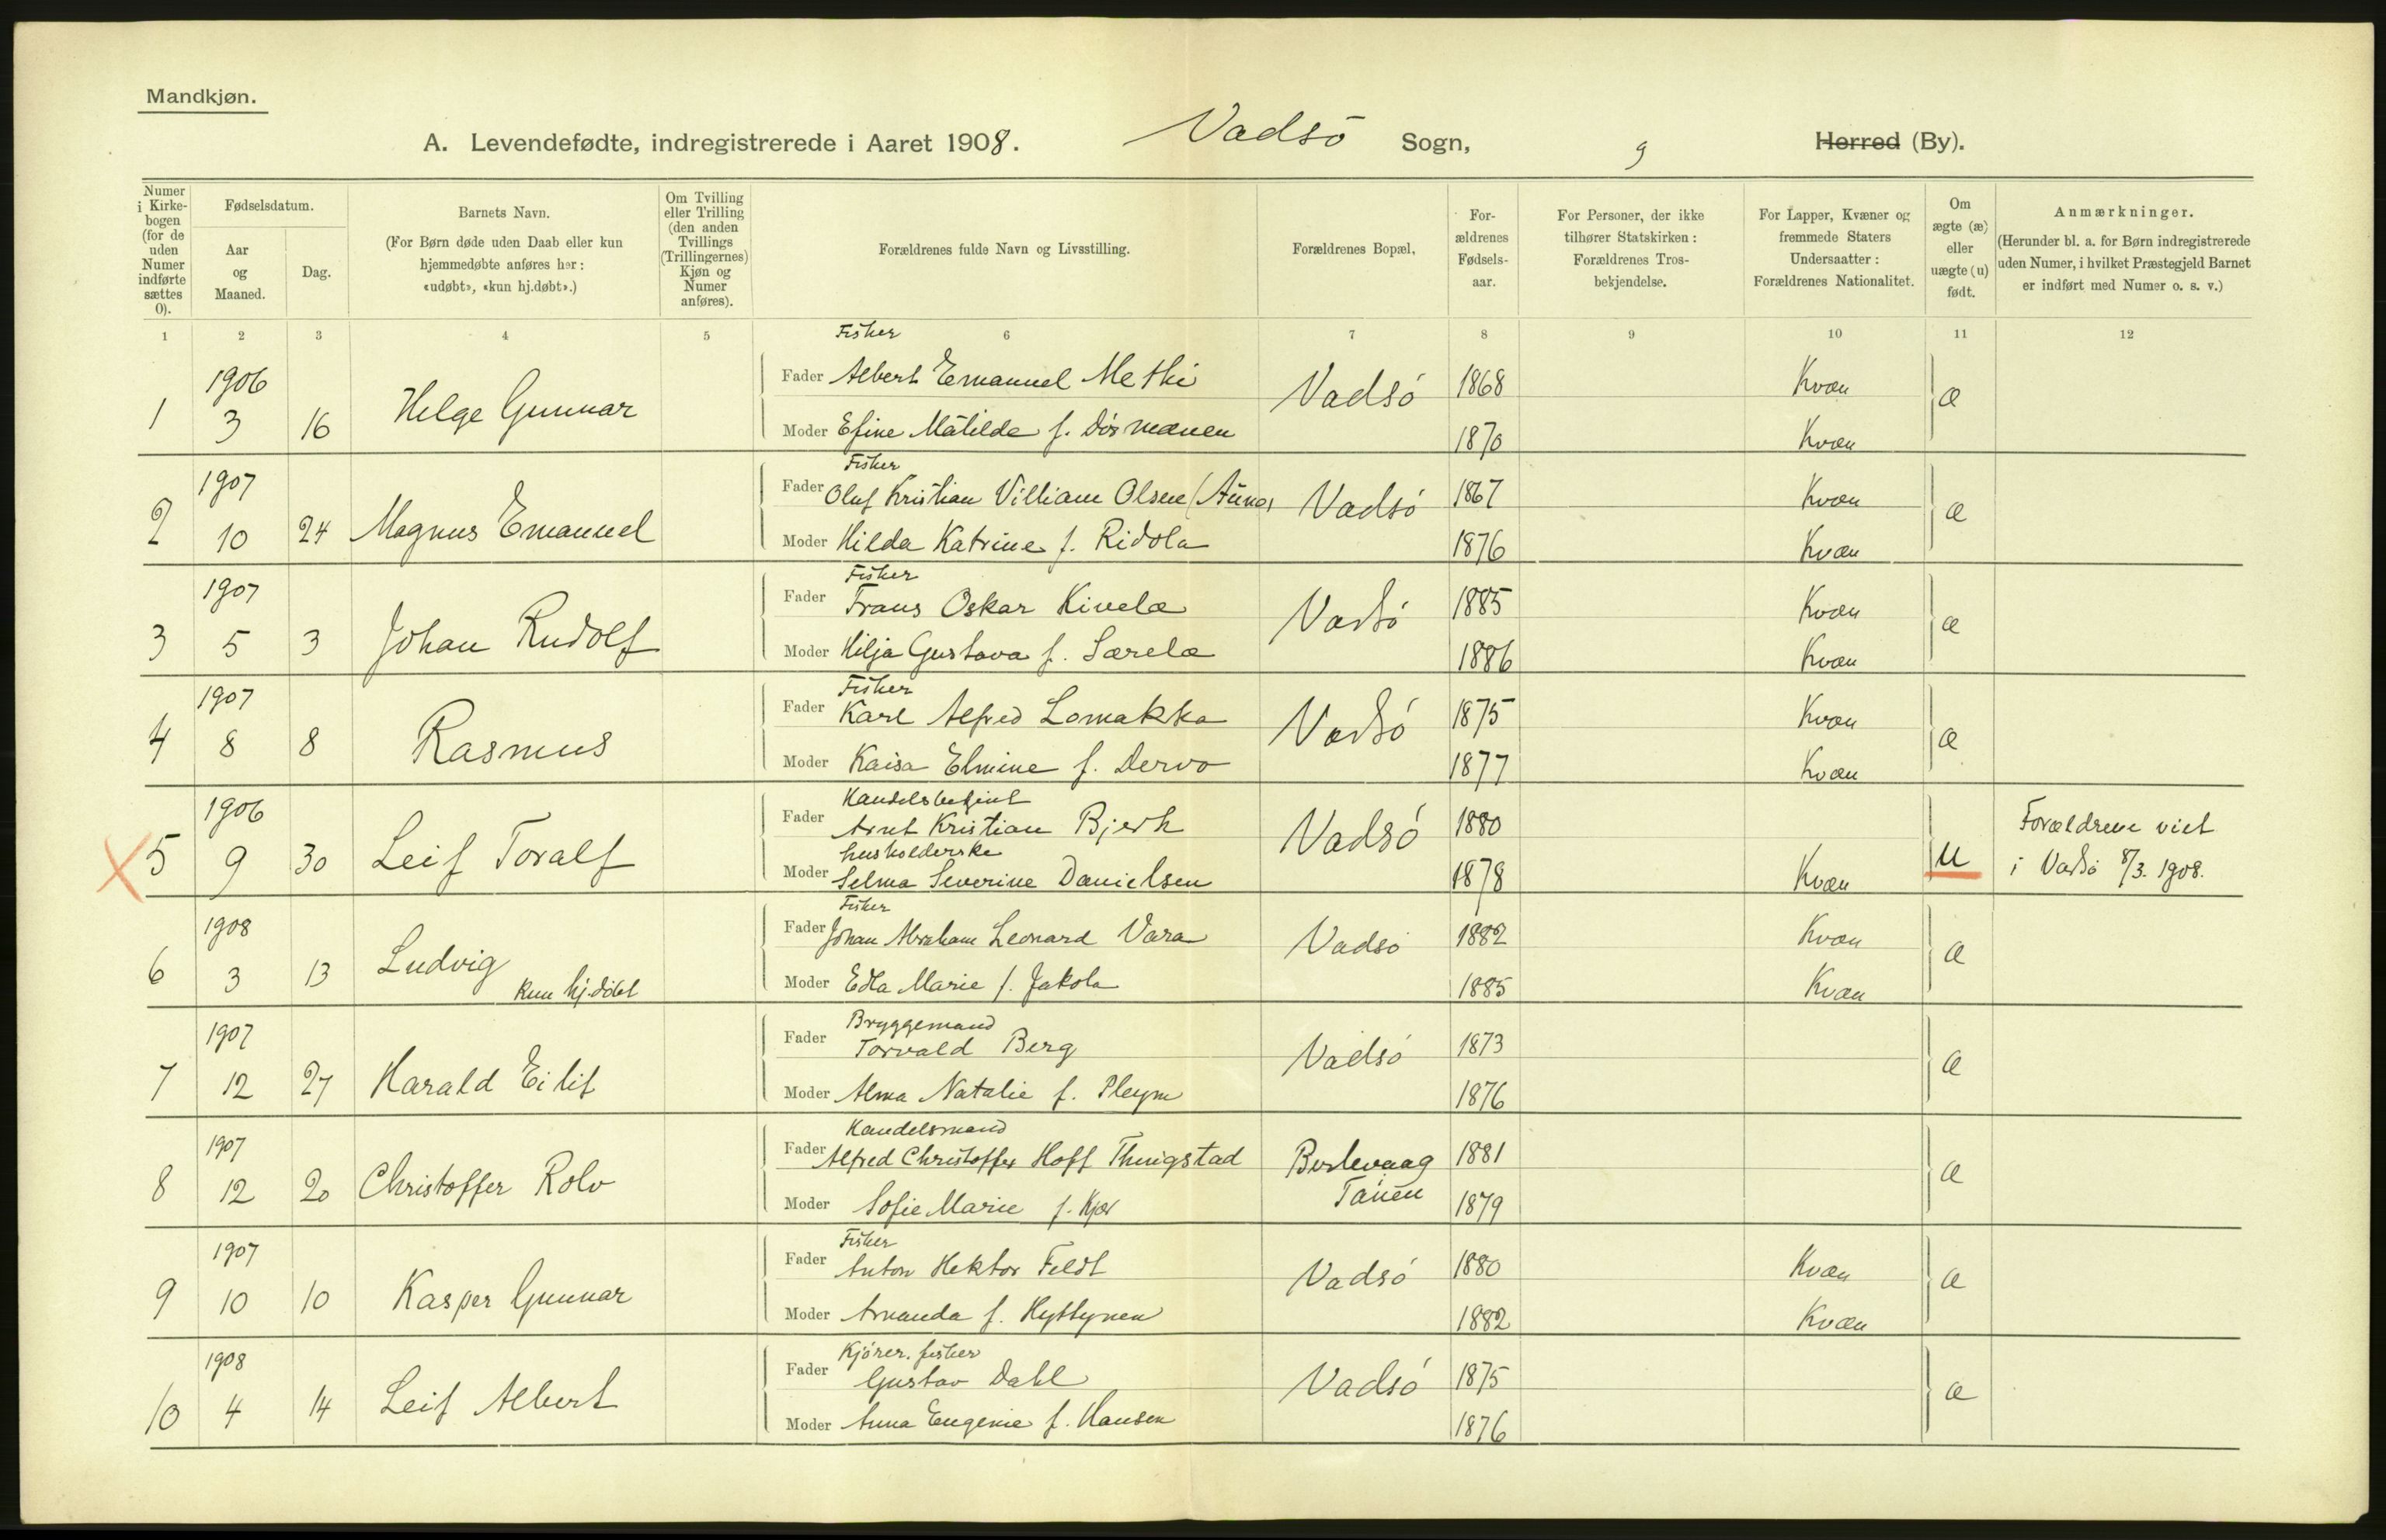 Mandkjøn.
A. Levendefødte, indregistrerede i Aaret 1908. Vadsö Sogn, 9 Herred (By).
Numer i Kirke-bogen (for de uden Numer indførte sættes 0).
Fødselsdatum.
Aar og Maaned.
Dag.
Barnets Navn.
(For Børn døde uden Daab eller kun hjemmedøbte anføres her: «udøbt», «kun hj.døbt».)
Om Tvilling eller Trilling (den anden Tvillings (Trillingernes) Kjøn og Numer anføres).
Forældrenes fulde Navn og Livsstilling.
Forældrenes Bopæl.
For-ældrenes Fødsels-aar.
For Personer, der ikke tilhører Statskirken: Forældrenes Tros-bekjendelse.
For Lapper, Kvæner og fremmede Staters Undersaatter: Forældrenes Nationalitet.
Om ægte (æ) eller uægte (u) født.
Anmærkninger.
(Herunder bl. a. for Børn indregistrerede uden Numer, i hvilket Præstegjeld Barnet er indført med Numer o. s. v.)
1 2 3 4 5 6 7 8 9 10 11 12
Fisker
1 1906 3 16 Helge Gunnar Fader Albert Emanuel Methi Vadsö 1868 Kvæn æ
Moder Efine Matilde f. 1870 Kvæn
Fisker
2 1907 10 24 Magnus Emanuel Fader Oluf Kristian Villiam Olsen (Aune) Vadsö 1867 Kvæn æ
Moder Hilda Katrine f. Ridola 1876 Kvæn
Fisker
3 1907 5 3 Johan Rudolf Fader Frans Oskar Kivelæ Vadsö 1885 Kvæn æ
Moder Hilja Gustava f. Særelæ 1886 Kvæn
Fisker
4 1907 8 8 Rasmus Fader Karl Alfred Lomakka Vadsö 1875 Kvæn æ
Moder Kaisa Elmine f. Dervo 1877 Kvæn
Handelsbetjent
5 1906 9 30 Leif Toralf Fader Arnt Kristian Bjerk Vadsö 1880 u Forældrene viet
husholderske
Moder Selma Severine Danielsen 1878 Kvæn i Vadsö 8/3. 1908.
Fisker
6 1908 3 13 Ludvig Fader Johan Abraham Leonard Vara Vadsö 1882 Kvæn æ
kun hj.döbt Moder Edla Marie f. Jakola 1885 Kvæn
Bryggemand
7 1907 12 27 Harald Eilif Fader Torvald Berg Vadsö 1873 æ
Moder Alma Natalie f. Pleym 1876
Handelsmand
8 1907 12 20 Christoffer Rolv Fader Alfred Christoffer Hoff Thingstad Berlevaag 1881 æ
Moder Sofie Marie f. Kjær Tanen 1879
Fisker
9 1907 10 10 Kasper Gunnar Fader Anton Hektor Feldt Vadsö 1880 Kvæn æ
Moder Amanda f. Hyttynen 1882 Kvæn
Kjörer. fisker
10 1908 4 14 Leif Albert Fader Gustav Dahl Vadsö 1875 æ
Moder Anna Eugenie f. Hansen 1876